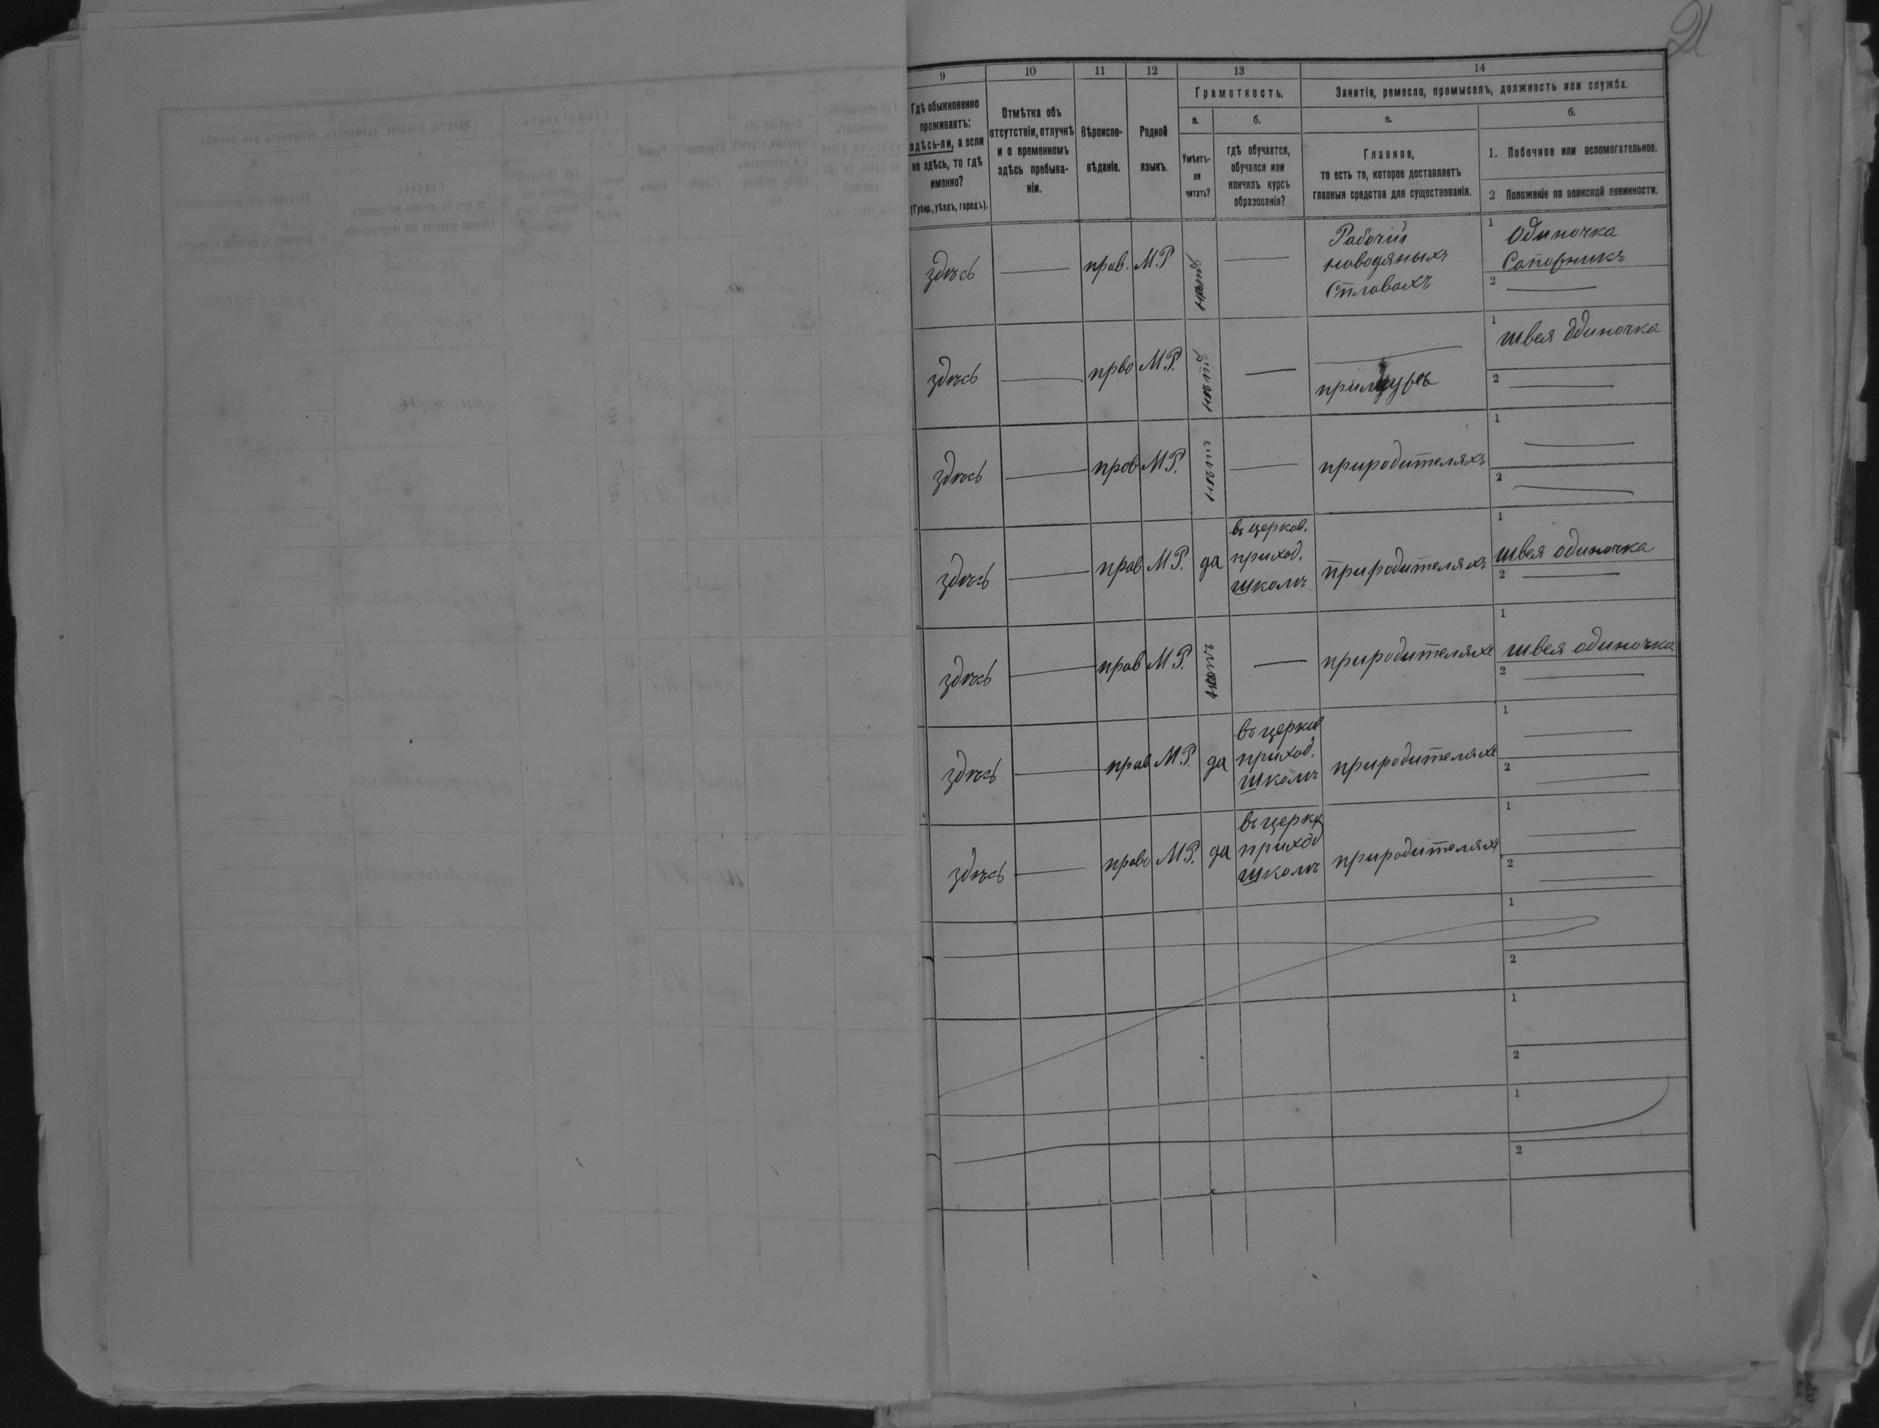 21
9 10 11 12 13 14
Гдѣ обыкновенно
проживаетъ:
здѣсь-ли, а если
не здѣсь, то гдѣ
именно?
(Губер., уѣздъ, городъ).
Отмѣтка объ
отсутствіи, отлучкѣ
и о временномъ
здѣсь пребыва-
ніи.
Вѣроиспо-
вѣданіе.
Родной
языкъ.
Грамотность.
а.
Умѣетъ-
ли
читать?
б.
гдѣ обучается,
обучался или
кончилъ курсъ
образованія?
Занятія, ремесло, промыселъ, должность или служба.
а.
Главное,
то есть то, которое доставляетъ
главныя средства для существованія.
б.
1. Побочное или вспомогательное.
2 Положеніе по воинской повинности.
здѣсь — прав. М.Р нѣтъ —
Рабочій
наводяныхъ
Сплавахъ
1 Одиночка
2 —
здѣсь — прво М.Р. нѣтъ —
1 швея Одиночка
2 —
здѣсь — прав М.Р. нѣтъ — природителяхъ
1 —
2 —
здѣсь — прав М.Р. да
въ церков.
приход.
школѣ
природителяхъ
1 швея одиночка
2 —
здѣсь — прав М.Р. нѣтъ — природителяхъ
1 швея одиночка
2 —
здѣсь — прав М.Р. да
въ церков
приход.
школѣ
природителяхъ
1 —
2 —
здѣсь — право М.Р. да
въ церкв
приход
школѣ
природителяхъ
1 —
2 —
1
2
1
2
1
2